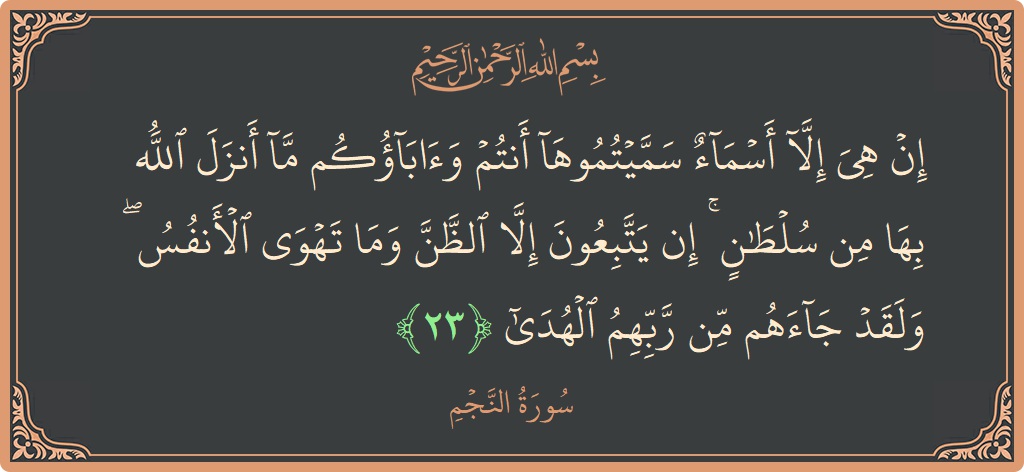 بِسْمِ اللهِ الرَّحْمٰنِ الرَّحِيْمِ
إِنۡ هِىَ إِلَّآ أَسۡمَآءٌ سَمَّيۡتُمُوهَآ أَنتُمۡ وَءَابَآؤُكُم مَّآ أَنزَلَ ٱللَّهُ
بِهَا مِن سُلۡطَٰنٍ ۚ إِن يَتَّبِعُونَ إِلَّا ٱلظَّنَّ وَمَا تَهۡوَى ٱلۡأَنفُسُ ۖ
وَلَقَدۡ جَآءَهُم مِّن رَّبِّهِمُ ٱلۡهُدَىٰٓ ﴿٢٣﴾
سُورَةُ النَّجۡمِ